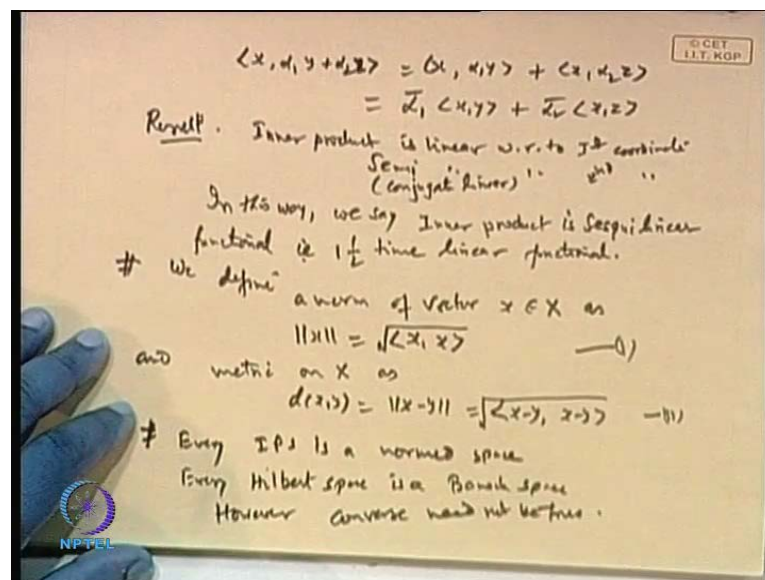 © CET
I.I.T. KGP
<x, α₁ y + α₂ z> = <x, α₁y> + <x, α₂ z>
= ᾱ₁ <x,y> + ᾱ₂ <x,z>
Result. Inner product is linear w.r.to Ist coordinate
Semi " " IInd "
(conjugate linear)
In this way, we say Inner product is Sesquilinear
functional ie 1½ time linear functional.
# We define
a norm of vector x ∈ X as
||x|| = √<x, x> —(I)
and metric on X as
d(x,y) = ||x-y|| = √<x-y, x-y> —(II)
# Every IPS is a normed space
Every Hilbert space is a Banach space
However converse need not be true.
NPTEL